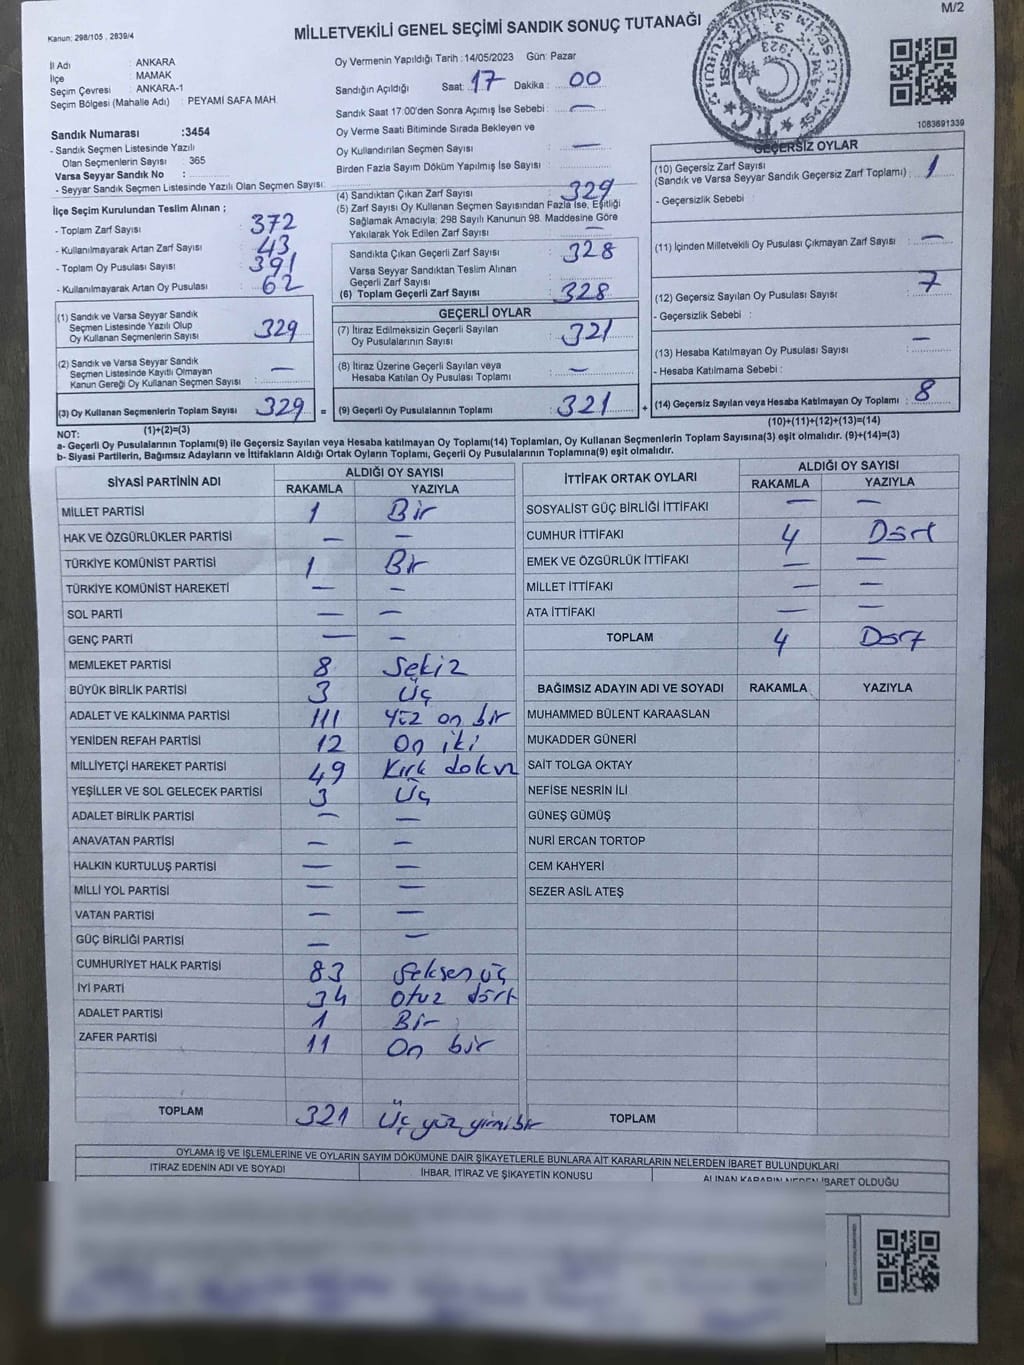 M/2
Kanun: 298/105 , 2839/4
MİLLETVEKİLİ GENEL SEÇİMİ SANDIK SONUÇ TUTANAĞI
İl Adı : ANKARA
İlçe : MAMAK
Seçim Çevresi : ANKARA-1
Seçim Bölgesi (Mahalle Adı) : PEYAMİ SAFA MAH.
Sandık Numarası :3454
- Sandık Seçmen Listesinde Yazılı
Olan Seçmenlerin Sayısı : 365
Varsa Seyyar Sandık No :
- Seyyar Sandık Seçmen Listesinde Yazılı Olan Seçmen Sayısı:
İlçe Seçim Kurulundan Teslim Alınan ;
- Toplam Zarf Sayısı : 372
- Kullanılmayarak Artan Zarf Sayısı : 43
- Toplam Oy Pusulası Sayısı : 391
- Kullanılmayarak Artan Oy Pusulası : 62
(1) Sandık ve Varsa Seyyar Sandık
Seçmen Listesinde Yazılı Olup
Oy Kullanan Seçmenlerin Sayısı : 329
(2) Sandık ve Varsa Seyyar Sandık
Seçmen Listesinde Kayıtlı Olmayan
Kanun Gereği Oy Kullanan Seçmen Sayısı : —
(3) Oy Kullanan Seçmenlerin Toplam Sayısı : 329 =
(1)+(2)=(3)
Oy Vermenin Yapıldığı Tarih : 14/05/2023 Gün: Pazar
Sandığın Açıldığı Saat : 17 Dakika : 00
Sandık Saat 17:00'den Sonra Açımış İse Sebebi : —
Oy Verme Saati Bitiminde Sırada Bekleyen ve
Oy Kullandırılan Seçmen Sayısı : —
Birden Fazla Sayım Döküm Yapılmış İse Sayısı :
(4) Sandıktan Çıkan Zarf Sayısı : 329
(5) Zarf Sayısı Oy Kullanan Seçmen Sayısından Fazla İse, Eşitliği
Sağlamak Amacıyla; 298 Sayılı Kanunun 98. Maddesine Göre
Yakılarak Yok Edilen Zarf Sayısı : —
Sandıkta Çıkan Geçerli Zarf Sayısı : 328
Varsa Seyyar Sandıktan Teslim Alınan
Geçerli Zarf Sayısı :
(6) Toplam Geçerli Zarf Sayısı : 328
GEÇERLİ OYLAR
(7) İtiraz Edilmeksizin Geçerli Sayılan
Oy Pusulalarının Sayısı : 321
(8) İtiraz Üzerine Geçerli Sayılan veya
Hesaba Katılan Oy Pusulası Toplamı : —
(9) Geçerli Oy Pusulalarının Toplamı : 321 +
1083691339
GEÇERSİZ OYLAR
(10) Geçersiz Zarf Sayısı
(Sandık ve Varsa Seyyar Sandık Geçersiz Zarf Toplamı) : 1
- Geçersizlik Sebebi :
(11) İçinden Milletvekili Oy Pusulası Çıkmayan Zarf Sayısı : —
(12) Geçersiz Sayılan Oy Pusulası Sayısı : 7
- Geçersizlik Sebebi :
(13) Hesaba Katılmayan Oy Pusulası Sayısı : —
- Hesaba Katılmama Sebebi :
(14) Geçersiz Sayılan veya Hesaba Katılmayan Oy Toplamı : 8
(10)+(11)+(12)+(13)=(14)
NOT:
a- Geçerli Oy Pusulalarının Toplamı(9) ile Geçersiz Sayılan veya Hesaba katılmayan Oy Toplamı(14) Toplamları, Oy Kullanan Seçmenlerin Toplam Sayısına(3) eşit olmalıdır. (9)+(14)=(3)
b- Siyasi Partilerin, Bağımsız Adayların ve İttifakların Aldığı Ortak Oyların Toplamı, Geçerli Oy Pusulalarının Toplamına(9) eşit olmalıdır.
SİYASİ PARTİNİN ADI ALDIĞI OY SAYISI
RAKAMLA YAZIYLA
MİLLET PARTİSİ 1 Bir
HAK VE ÖZGÜRLÜKLER PARTİSİ — —
TÜRKİYE KOMÜNİST PARTİSİ 1 Bir
TÜRKİYE KOMÜNİST HAREKETİ — —
SOL PARTİ — —
GENÇ PARTİ — —
MEMLEKET PARTİSİ 8 Sekiz
BÜYÜK BİRLİK PARTİSİ 3 Üç
ADALET VE KALKINMA PARTİSİ 111 Yüz on bir
YENİDEN REFAH PARTİSİ 12 On iki
MİLLİYETÇİ HAREKET PARTİSİ 49 Kırk dokuz
YEŞİLLER VE SOL GELECEK PARTİSİ 3 Üç
ADALET BİRLİK PARTİSİ — —
ANAVATAN PARTİSİ — —
HALKIN KURTULUŞ PARTİSİ — —
MİLLİ YOL PARTİSİ — —
VATAN PARTİSİ — —
GÜÇ BİRLİĞİ PARTİSİ — —
CUMHURİYET HALK PARTİSİ 83 Seksen üç
İYİ PARTİ 34 Otuz dört
ADALET PARTİSİ 1 Bir
ZAFER PARTİSİ 11 On bir
TOPLAM 321 Üç yüz yirmi bir
İTTİFAK ORTAK OYLARI ALDIĞI OY SAYISI
RAKAMLA YAZIYLA
SOSYALİST GÜÇ BİRLİĞİ İTTİFAKI — —
CUMHUR İTTİFAKI 4 Dört
EMEK VE ÖZGÜRLÜK İTTİFAKI — —
MİLLET İTTİFAKI — —
ATA İTTİFAKI — —
TOPLAM 4 Dört
BAĞIMSIZ ADAYIN ADI VE SOYADI RAKAMLA YAZIYLA
MUHAMMED BÜLENT KARAASLAN
MUKADDER GÜNERİ
SAİT TOLGA OKTAY
NEFİSE NESRİN İLİ
GÜNEŞ GÜMÜŞ
NURİ ERCAN TORTOP
CEM KAHYERİ
SEZER ASİL ATEŞ
TOPLAM
OYLAMA İŞ VE İŞLEMLERİNE VE OYLARIN SAYIM DÖKÜMÜNE DAİR ŞİKAYETLERLE BUNLARA AİT KARARLARIN NELERDEN İBARET BULUNDUKLARI
İTİRAZ EDENİN ADI VE SOYADI İHBAR, İTİRAZ VE ŞİKAYETİN KONUSU ALINAN KARARIN NEDEN İBARET OLDUĞU